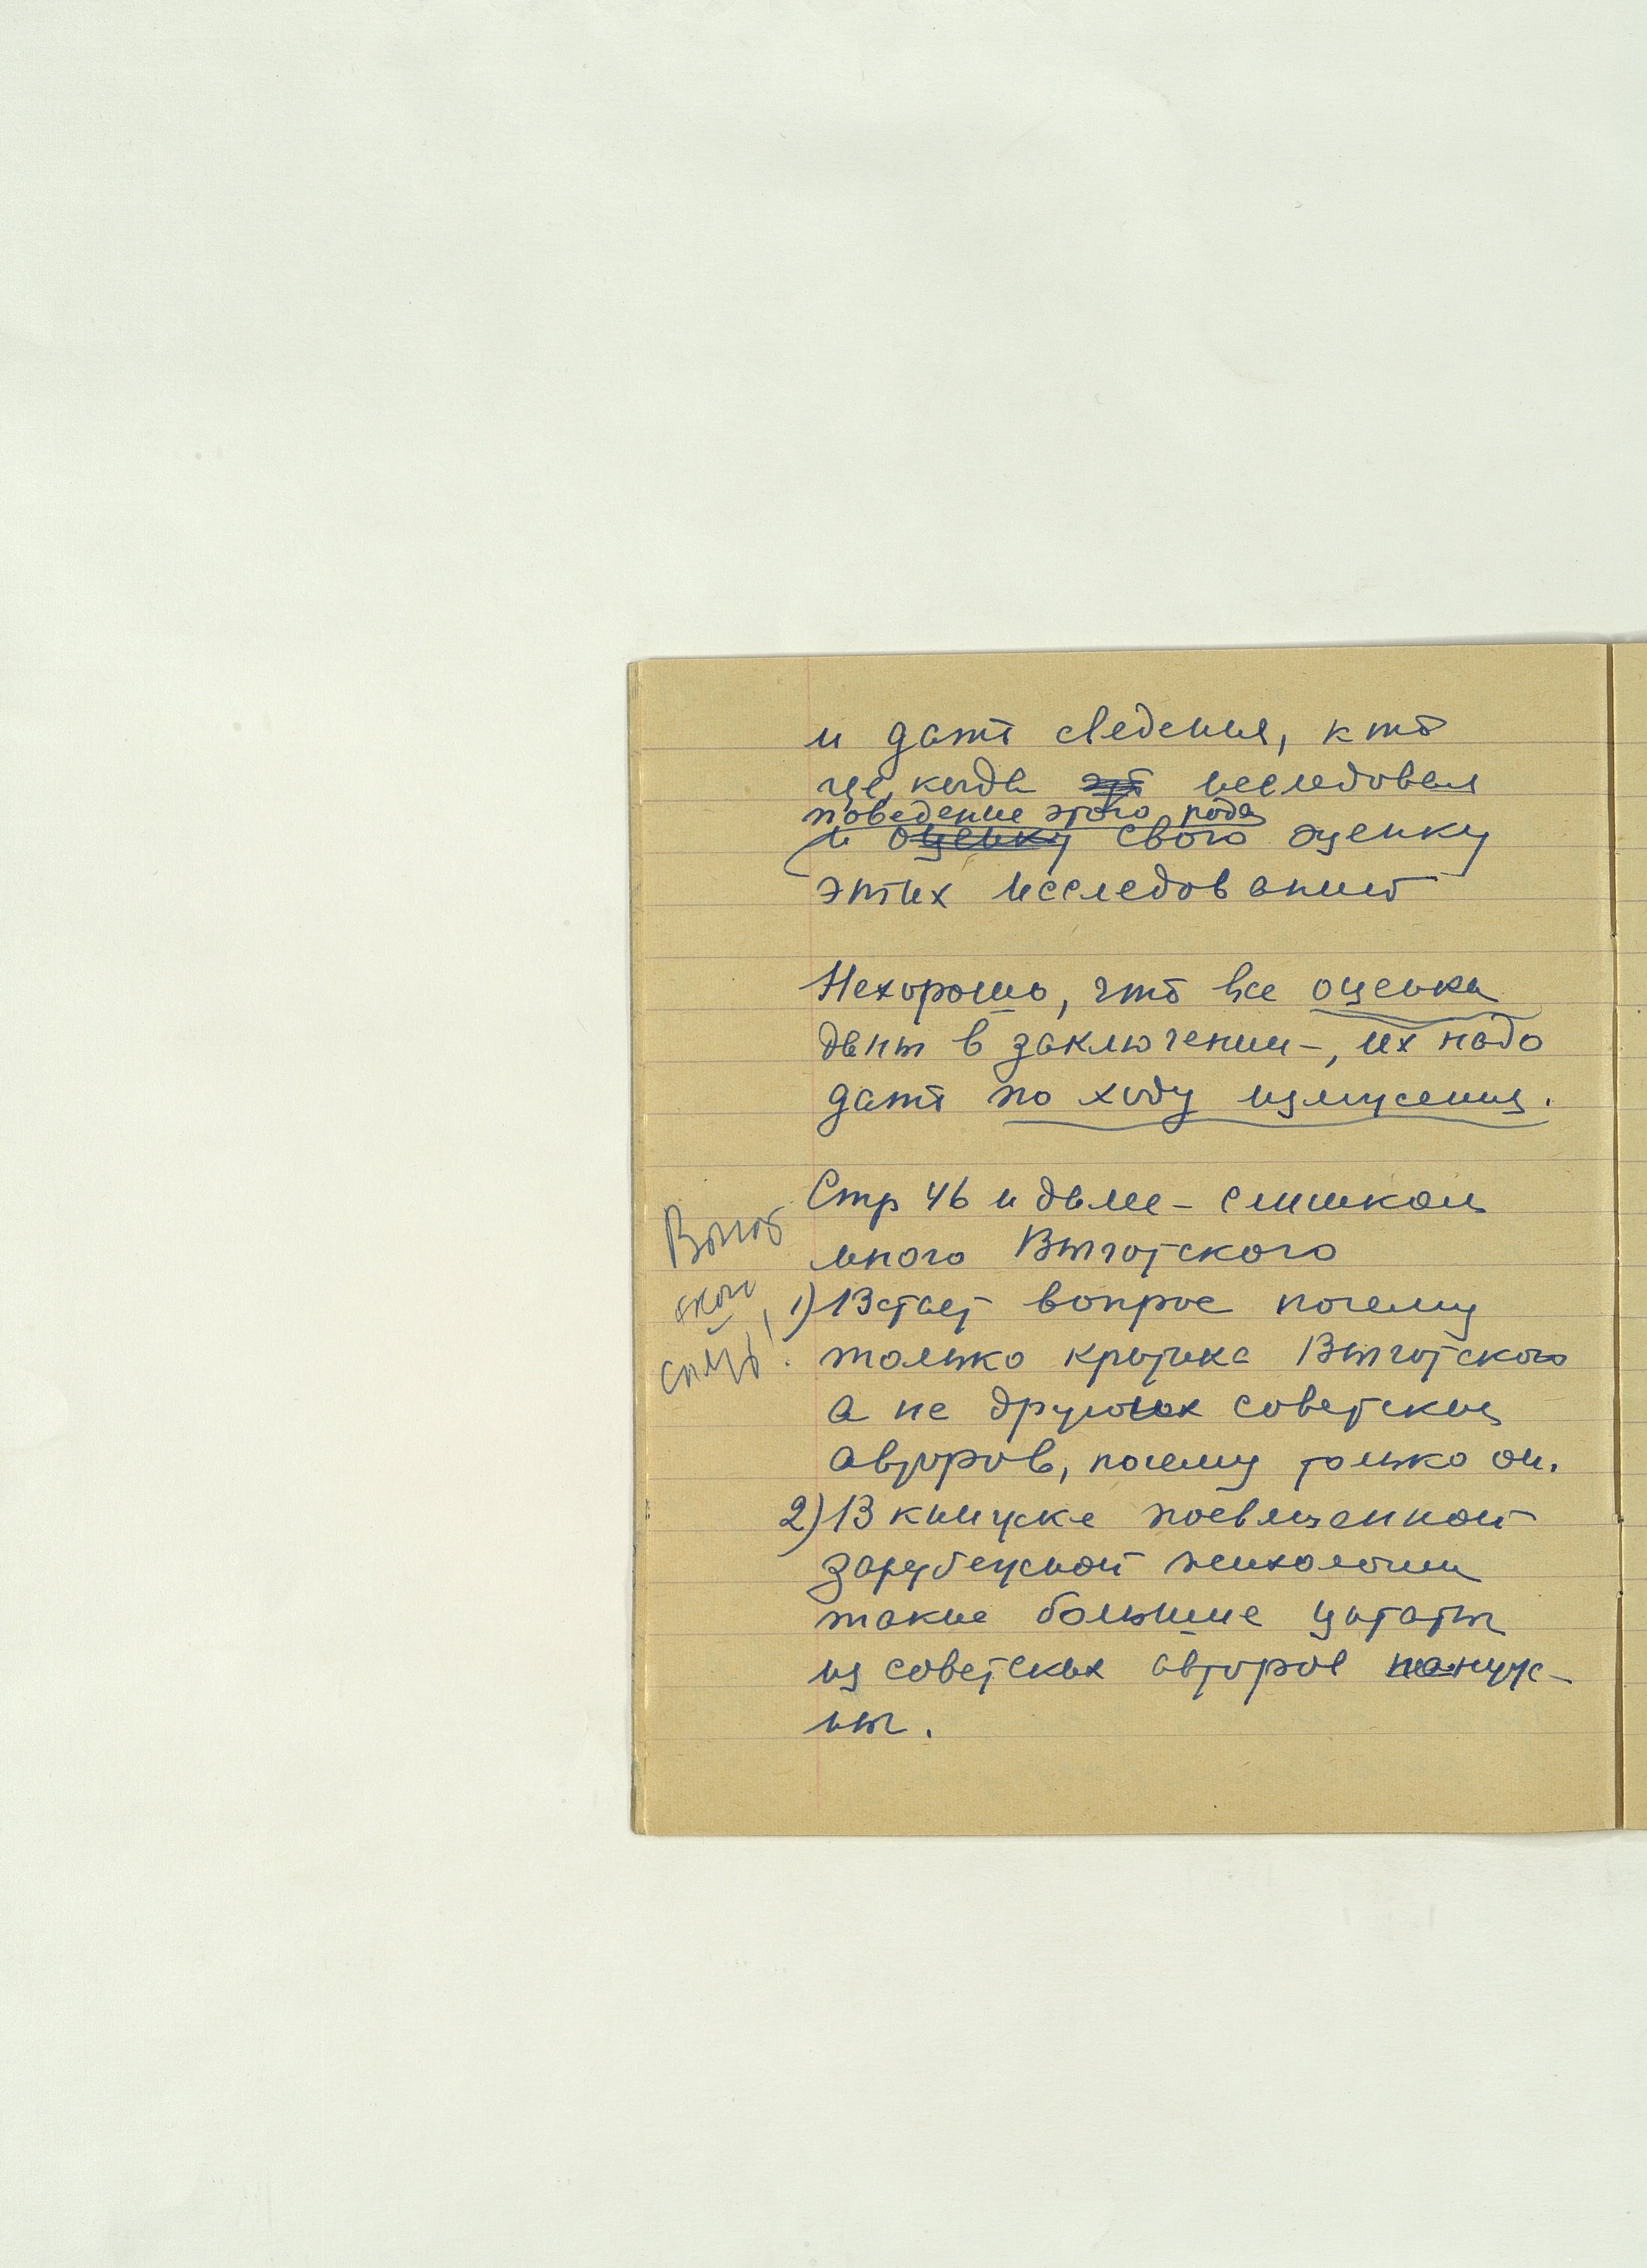 и дать сведения, кто
где, когда исследовал
поведение этого рода
и оценку свою оценку
этих исследований
Нехорошо, что все оценка
дана в заключении-, их надо
дать по ходу изложения.
Стр 46 и далее - слишком
много Выготского
1) Встает вопрос почему
только критика Выготского
а не других советских
авторов, почему только он.
2) В книжке посвященной
зарубежной психологии
такие большие цитаты
из советских авторов не нуж-
ны.
Выгот
ского
снять!